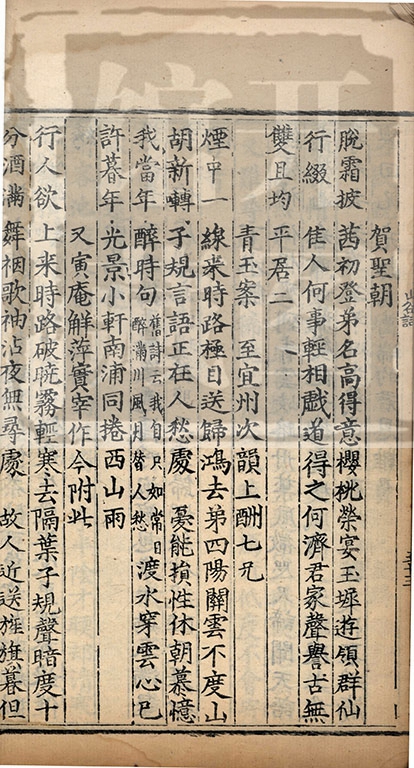 賀聖朝
脫霜披茜初登第名高得意櫻桃榮宴玉墀遊領群仙
行綴 佳人何事輕相戲道得之何濟君家聲譽古無
雙且均平居二
青玉案 至宜州次韻上酬七兄
煙中一線来時路極目送歸鴻去第四陽關雲不度山
胡新轉子規言語正在人愁處 憂能損性休朝慕憶
我當年醉時句 舊詩云我自只如常日醉滿川風月替人愁 渡水穿雲心已
許暮年光景小軒南浦同捲西山雨
又寅庵解萍實宰作今附此
行人欲上来時路破曉霧輕寒去隔葉子規聲暗度十
分酒滿舞裀歌袖沾夜無尋處 故人近送旌旗暮但
山谷詞